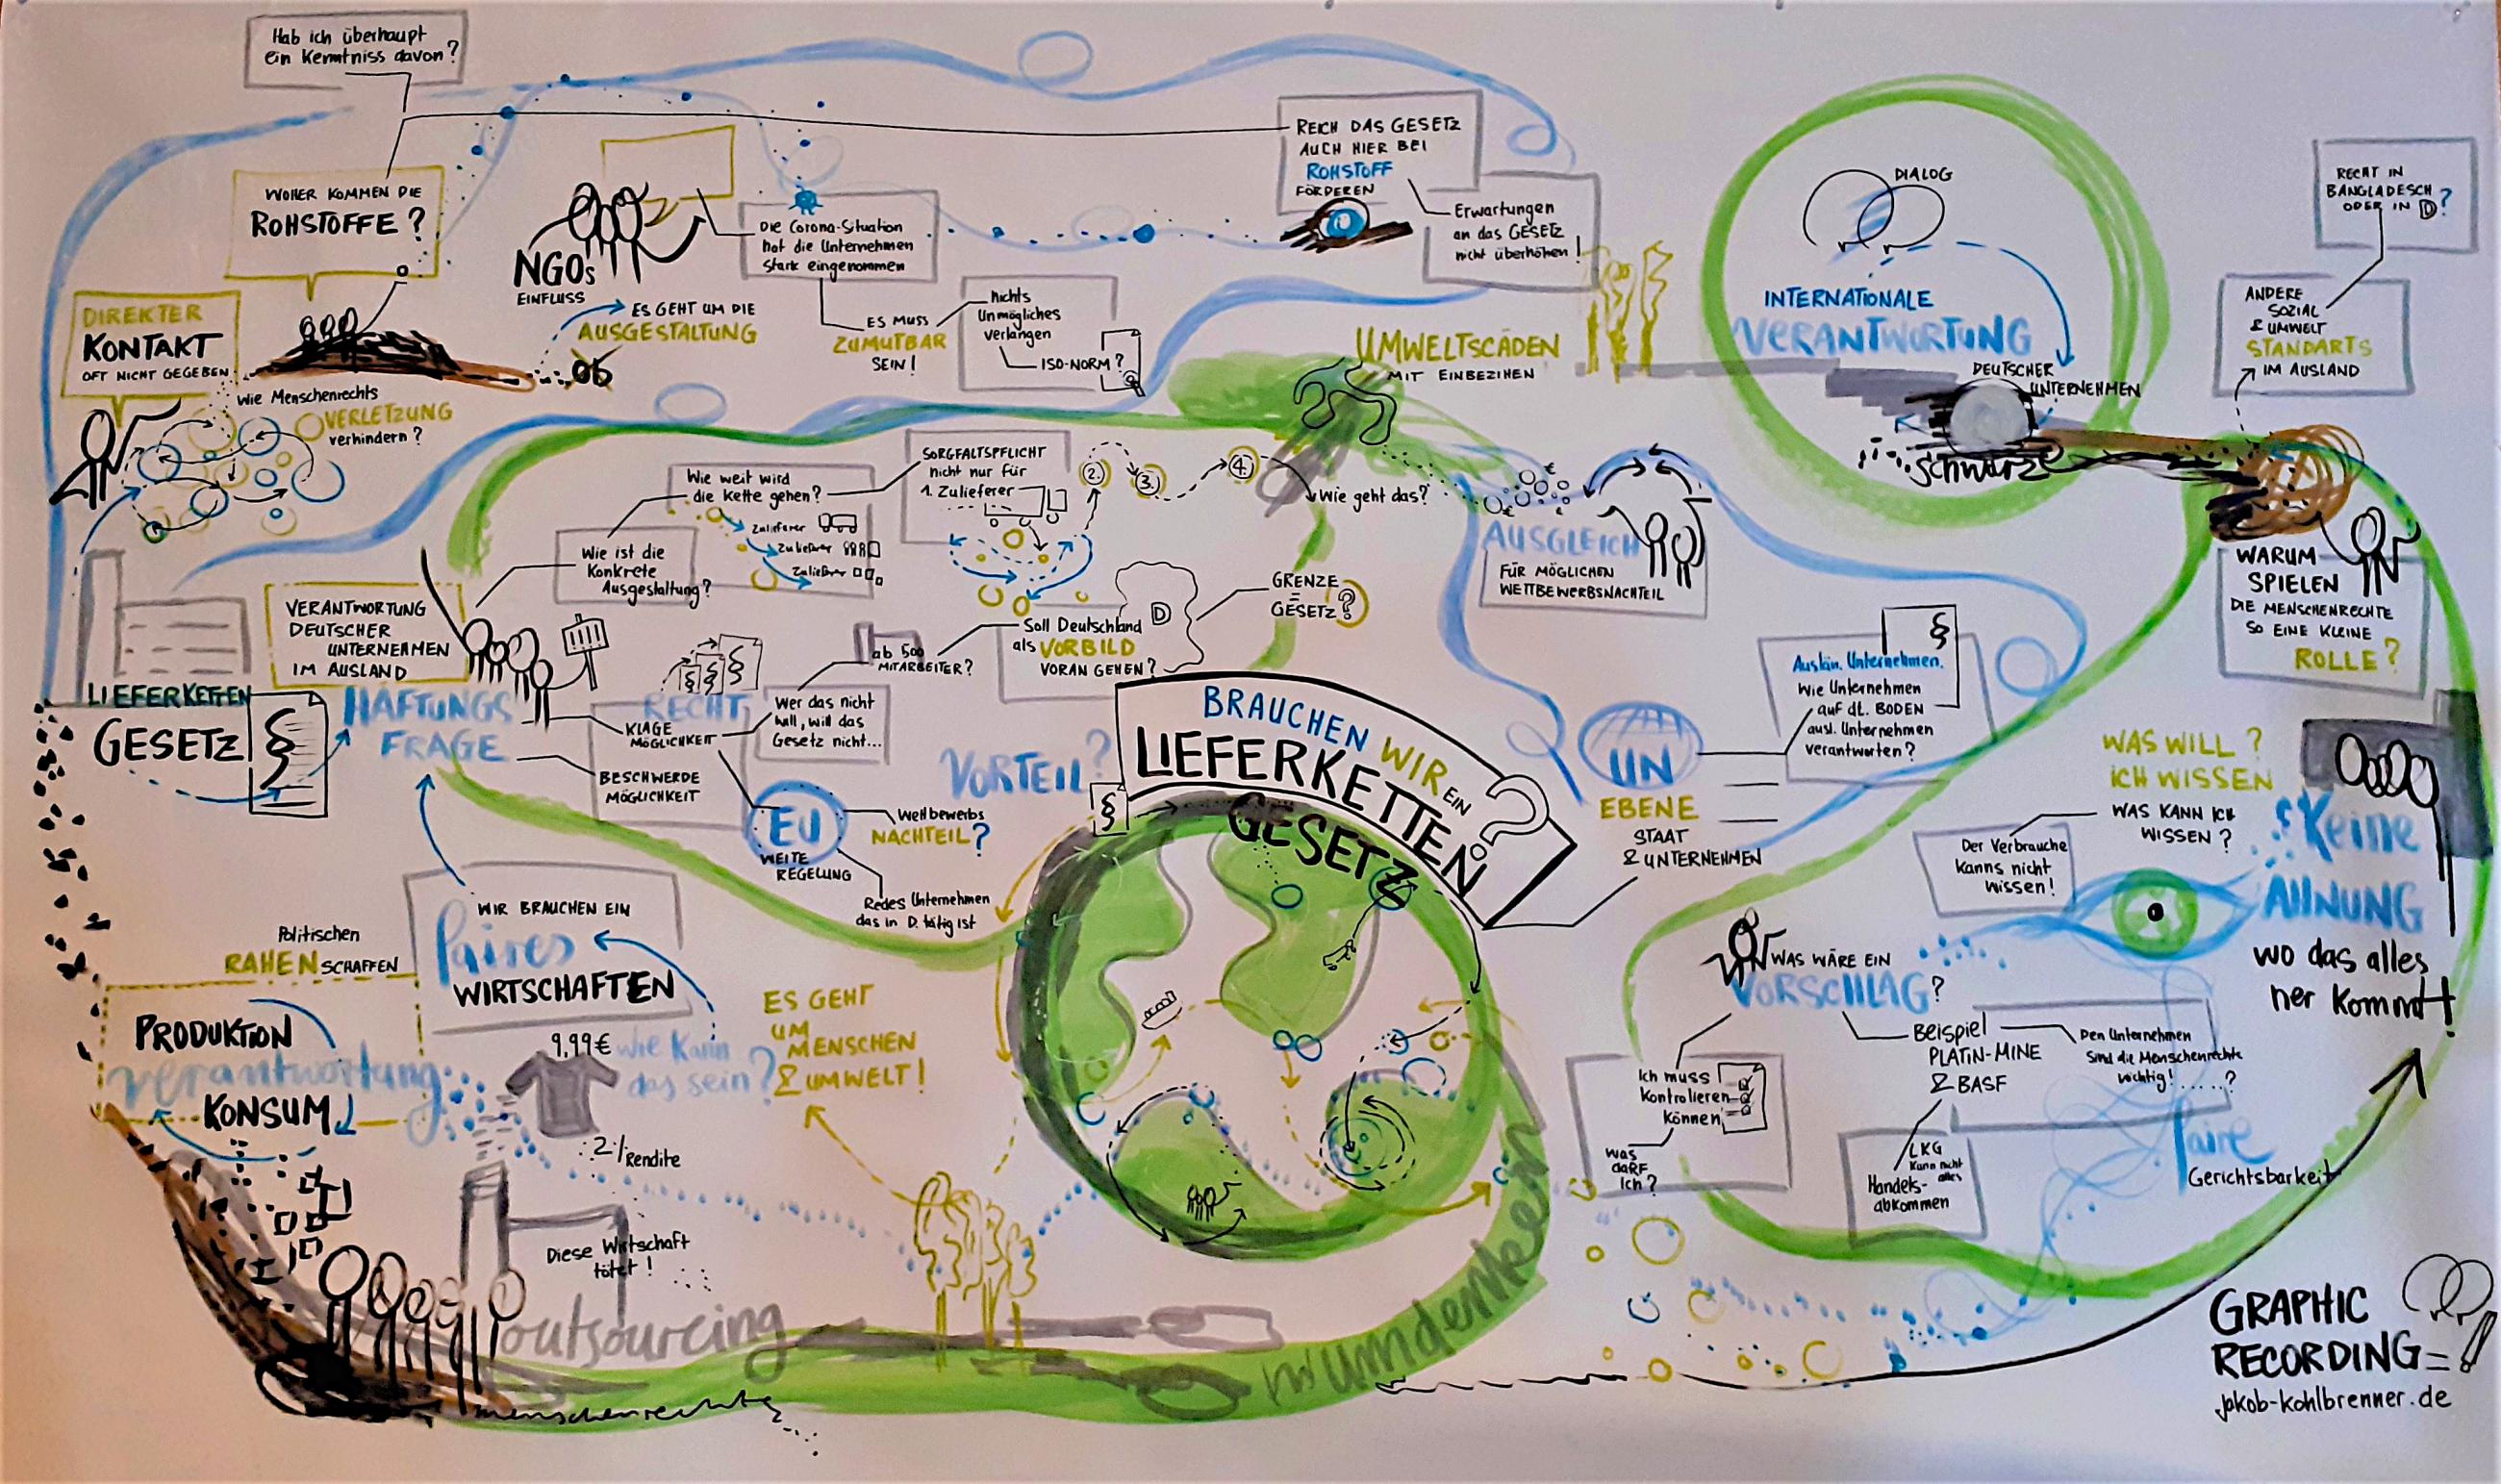 Hab ich überhaupt
ein Kenntniss davon?
WOHER KOMMEN DIE
ROHSTOFFE?
DIREKTER
KONTAKT
OFT NICHT GEGEBEN
wie Menschenrechts
VERLETZUNG
verhindern?
NGOs
EINFLUSS
ES GEHT UM DIE
AUSGESTALTUNG
ob
Die Corona-Situation
hat die Unternehmen
stark eingenommen
ES MUSS
ZUMUTBAR
SEIN!
nichts
Unmögliches
verlangen
ISO-NORM?
REICH DAS GESETZ
AUCH HIER BEI
ROHSTOFF
FÖRDEREN
Erwartungen
an das GESETZ
nicht überhöhen!
UMWELTSCÄDEN
MIT EINBEZIHEN
DIALOG
INTERNATIONALE
VERANTWORTUNG
DEUTSCHER
UNTERNEHMEN
schwarz
RECHT IN
BANGLADESCH
ODER IN D?
ANDERE
SOZIAL
& UMWELT
STANDARTS
IM AUSLAND
WARUM
SPIELEN
DIE MENSCHENRECHTE
SO EINE KLEINE
ROLLE?
Wie weit wird
die Kette gehen?
Zulieferer
Zulieferer
Zulieferer
SORGFALTSPFLICHT
nicht nur für
1. Zulieferer
2.
3.
4.
Wie geht das?
Wie ist die
Konkrete
Ausgestaltung?
AUSGLEICH
FÜR MÖGLICHEN
WETTBEWERBSNACHTEIL
VERANTWORTUNG
DEUTSCHER
UNTERNEHMEN
IM AUSLAND
LIEFERKETTEN
GESETZ
§
HAFTUNGS
FRAGE
RECHT
§ § §
KLAGE
MÖGLICHKEIT
BESCHWERDE
MÖGLICHKEIT
ab 500
MITARBEITER?
Wer das nicht
will, will das
Gesetz nicht...
Soll Deutschland
als VORBILD
VORAN GEHEN?
D
GRENZE
=
GESETZ?
EU
WEITE
REGELUNG
Wettbewerbs
NACHTEIL?
Redes Unternehmen
das in D. tätig ist
VORTEIL?
§
BRAUCHEN WIR EIN
LIEFERKETTEN
GESETZ
?
UN
EBENE
STAAT
& UNTERNEHMEN
§
Auslän. Unternehmen.
Wie Unternehmen
auf dt. BODEN
ausl. Unternehmen
verantworten?
WAS WILL?
ICH WISSEN
WAS KANN ICH
WISSEN?
Der Verbrauche
kanns nicht
wissen!
Keine
AHNUNG
wo das alles
her kommt!
WAS WÄRE EIN
VORSCHLAG?
Beispiel
PLATIN-MINE
& BASF
Den Unternehmen
sind die Menschenrechte
wichtig!......?
Ich muss
Kontrolieren
können
Was
darf
Ich?
LKG
kann nicht
alles
Handels-
abkommen
faire
Gerichtsbarkeit
WIR BRAUCHEN EIN
faires
WIRTSCHAFTEN
Politischen
RAHEN SCHAFFEN
PRODUKTION
verantwortung
KONSUM
9,99€
wie kann
das sein?
2% Rendite
ES GEHT
UM
MENSCHEN
& UMWELT!
Diese Wirtschaft
tötet!
outsourcing
menschenrechte
umdenken
GRAPHIC
RECORDING=
jakob-kohlbrenner.de